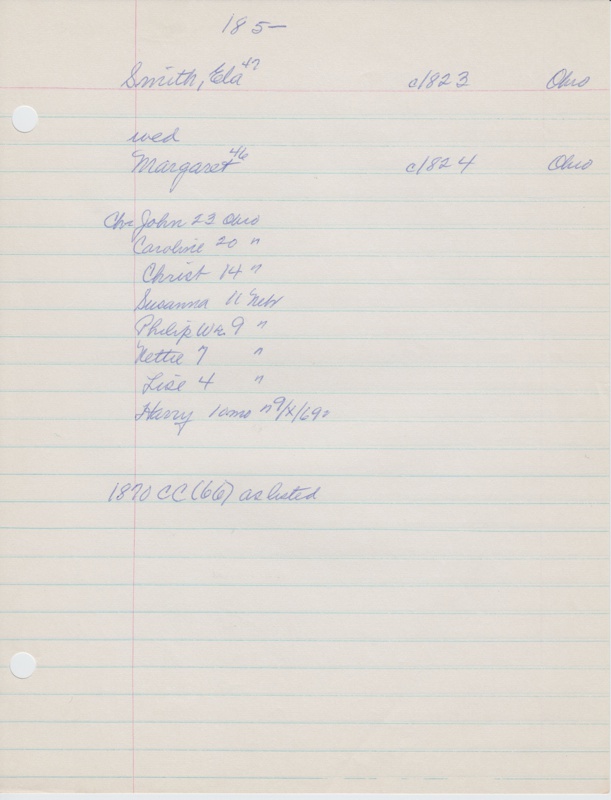 185-
Smith, Ela 47 c1823 Ohio
wed
Margaret 46 c1824 Ohio
Chr John 23 Ohio
Caroline 20 "
Christ 14 "
Susanna 11 Nebr
Philip Wm 9 "
Nettie 7 "
Lise 4 "
Harry "
1870 CC (66) as listed